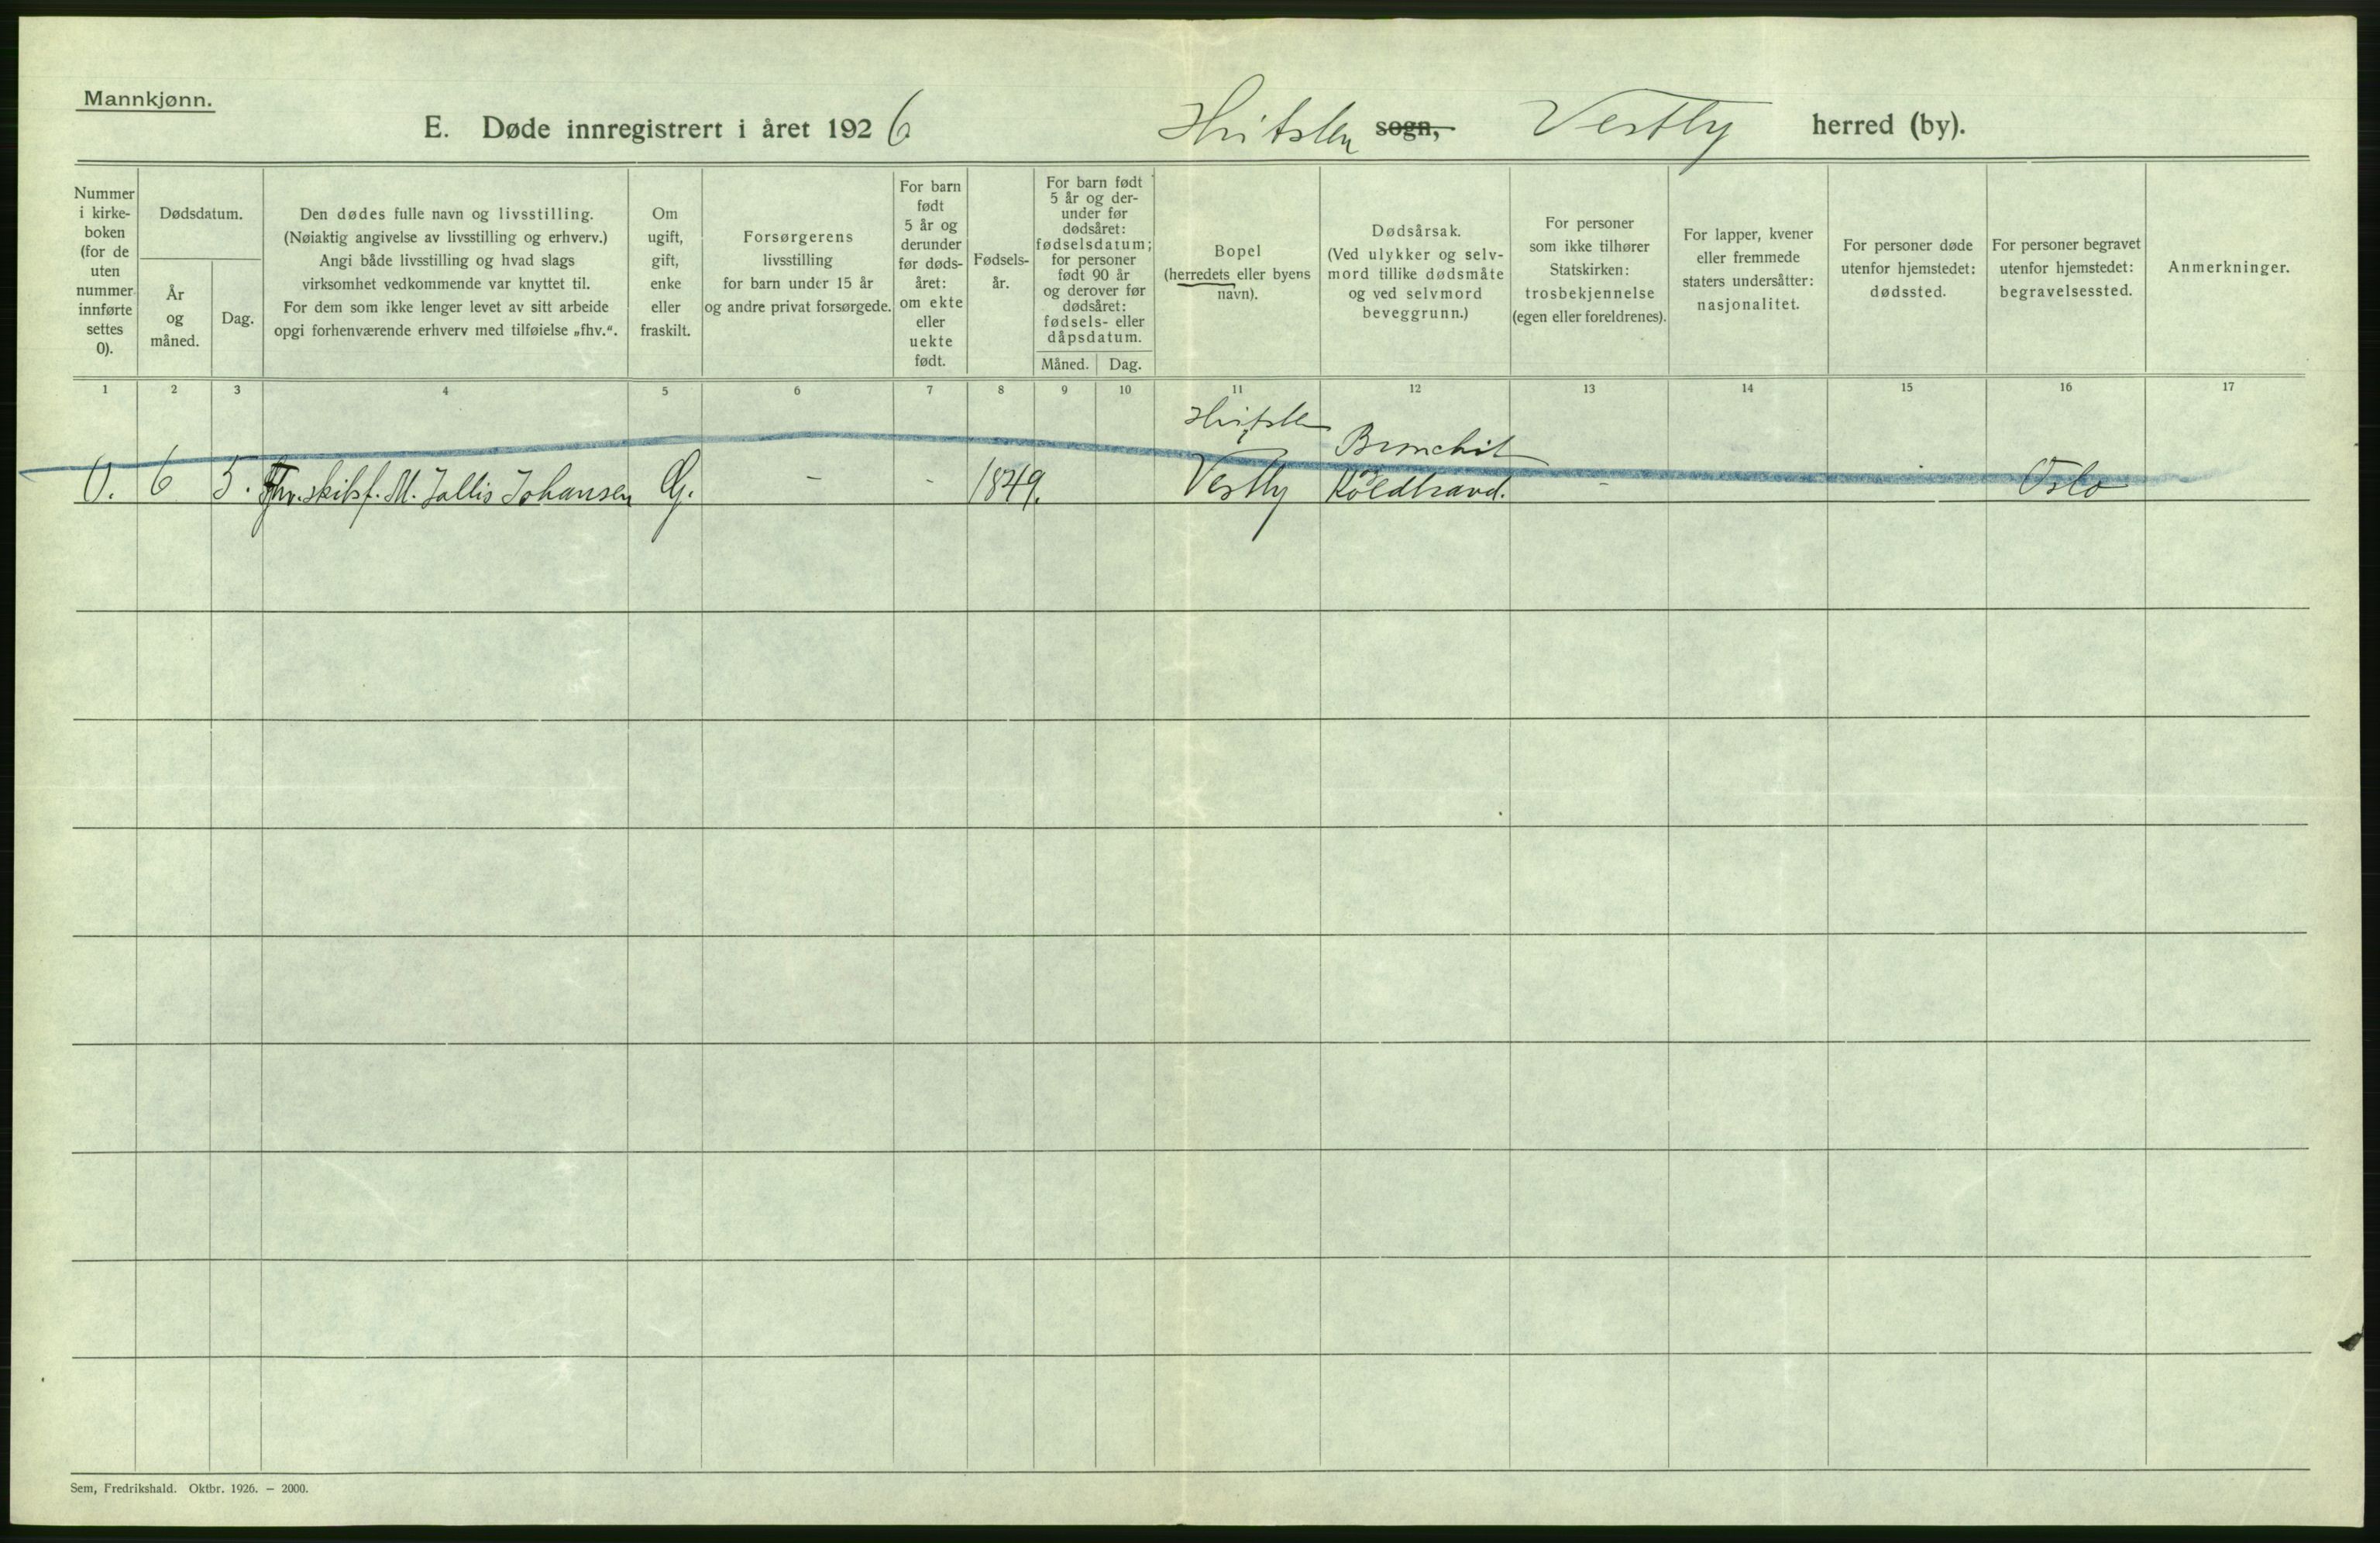 Mannkjønn.
E. Døde innregistrert i året 1926 Hvitsten sogn, Vestby herred (by).
Nummer
i kirke-
boken
(for de
uten
nummer
innførte
settes
0).
Dødsdatum.
År
og
måned.
Dag.
Den dødes fulle navn og livsstilling.
(Nøiaktig angivelse av livsstilling og erhverv.)
Angi både livsstilling og hvad slags
virksomhet vedkommende var knyttet til.
For dem som ikke lenger levet av sitt arbeide
opgi forhenværende erhverv med tilføielse „fhv.“.
Om
ugift,
gift,
enke
eller
fraskilt.
Forsørgerens
livsstilling
for barn under 15 år
og andre privat forsørgede.
For barn
født
5 år og
derunder
før døds-
året:
om ekte
eller
uekte
født.
Fødsels-
år.
For barn født
5 år og der-
under før
dødsåret:
fødselsdatum;
for personer
født 90 år
og derover før
dødsåret:
fødsels- eller
dåpsdatum.
Måned. Dag.
Bopel
(herredets eller byens
navn).
Dødsårsak.
(Ved ulykker og selv-
mord tillike dødsmåte
og ved selvmord
beveggrunn.)
For personer
som ikke tilhører
Statskirken:
trosbekjennelse
(egen eller foreldrenes).
For lapper, kvener
eller fremmede
staters undersåtter:
nasjonalitet.
For personer døde
utenfor hjemstedet:
dødssted.
For personer begravet
utenfor hjemstedet:
begravelsessted.
Anmerkninger.
1 2 3 4 5 6 7 8 9 10 11 12 13 14 15 16 17
Hvitsten
Bronchit
0. 6 5. Fhv. skibsf. M. Jallis Johansen G. - - 1849. Vestby Koldbrand. - - Oslo
Sem, Fredrikshald. Oktbr. 1926. — 2000.